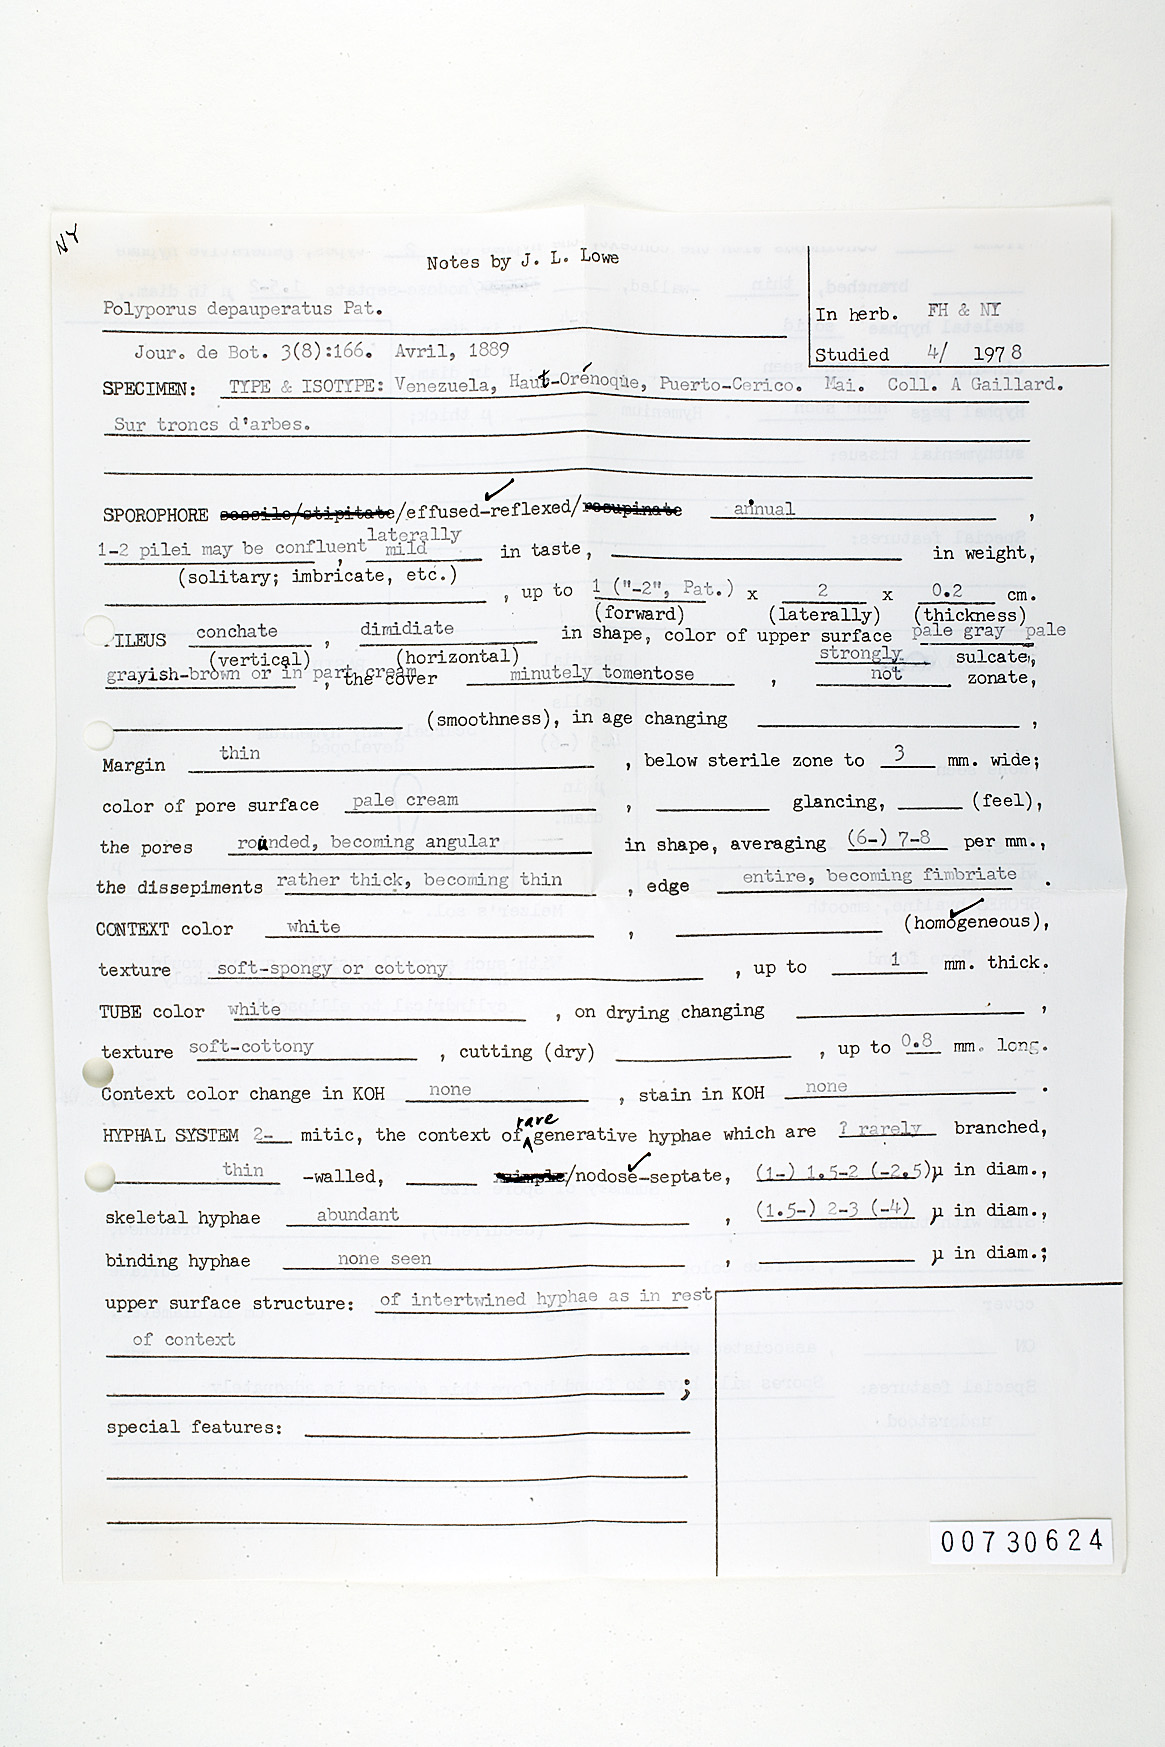 NY
Notes by J. L. Lowe
Polyporus depauperatus Pat.
In herb. FH & NY
Jour. de Bot. 3(8):166. Avril, 1889
Studied 4/ 1978
SPECIMEN: TYPE & ISOTYPE: Venezuela, Haut-Orénoque, Puerto-Cerico. Mai. Coll. A Gaillard.
Sur troncs d'arbes.
SPOROPHORE sessile/stipitate/effused-reflexed/resupinate annual ,
laterally
1-2 pilei may be confluent , mild in taste, in weight,
(solitary; imbricate, etc.)
, up to 1 ("-2", Pat.) x 2 x 0.2 cm.
(forward) (laterally) (thickness)
PILEUS conchate , dimidiate in shape, color of upper surface pale gray pale
(vertical) (horizontal) strongly sulcate,
grayish-brown or in part cream , the cover minutely tomentose , not zonate,
(smoothness), in age changing ,
Margin thin , below sterile zone to 3 mm. wide;
color of pore surface pale cream , glancing, (feel),
the pores rounded, becoming angular in shape, averaging (6-) 7-8 per mm.,
the dissepiments rather thick, becoming thin , edge entire, becoming fimbriate .
CONTEXT color white , (homogeneous),
texture soft-spongy or cottony , up to 1 mm. thick.
TUBE color white , on drying changing ,
texture soft-cottony , cutting (dry) , up to 0.8 mm. long.
Context color change in KOH none , stain in KOH none .
rare
HYPHAL SYSTEM 2- mitic, the context of generative hyphae which are ? rarely branched,
thin -walled, simple/nodose-septate, (1-) 1.5-2 (-2.5)µ in diam.,
skeletal hyphae abundant , (1.5-) 2-3 (-4) µ in diam.,
binding hyphae none seen , µ in diam.;
upper surface structure: of intertwined hyphae as in rest
of context
;
special features:
00730624